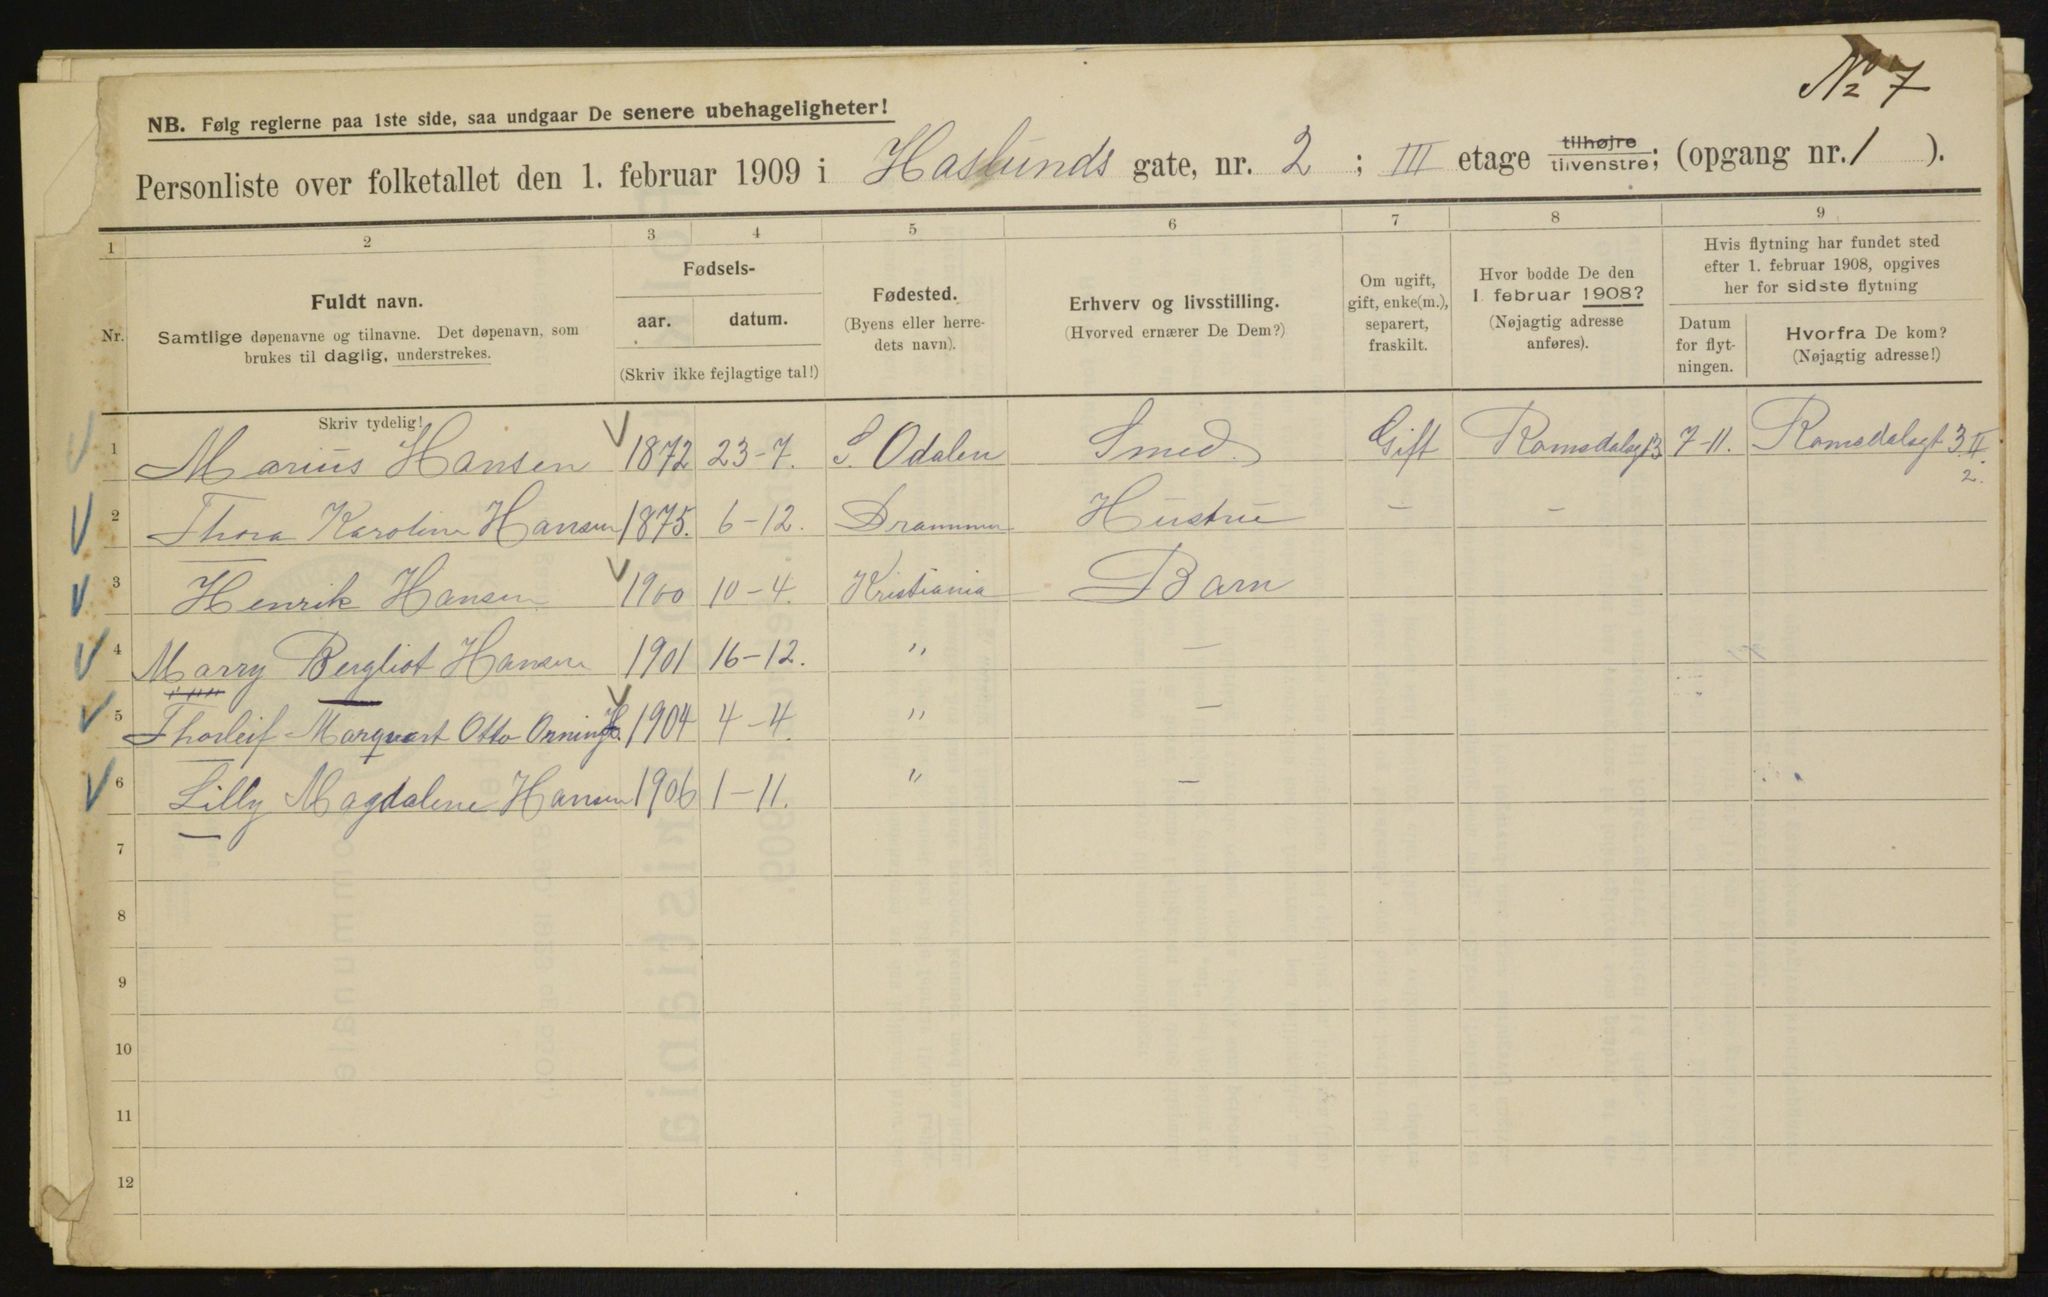 No 7
NB. Følg reglerne paa 1ste side, saa undgaar De senere ubehageligheter!
Personliste over folketallet den 1. februar 1909 i Haslunds gate, nr. 2 ; III etage tilhøjre tilvenstre; (opgang nr. 1 ).
1 2 3 4 5 6 7 8 9
Nr.
Fuldt navn.
Samtlige døpenavne og tilnavne. Det døpenavn, som
brukes til daglig, understrekes.
Fødsels-
aar. datum.
(Skriv ikke fejlagtige tal!)
Fødested.
(Byens eller herre-
dets navn).
Erhverv og livsstilling.
(Hvorved ernærer De Dem?)
Om ugift,
gift, enke(m.),
separert,
fraskilt.
Hvor bodde De den
1. februar 1908?
(Nøjagtig adresse
anføres).
Hvis flytning har fundet sted
efter 1. februar 1908, opgives
her for sidste flytning
Datum
for flyt-
ningen.
Hvorfra De kom?
(Nøjagtig adresse!)
Skriv tydelig!
1 Marius Hansen 1872 23-7. S. Odalen Smed. Gift Romsdalsgt 3 7-11. Romsdalsgt 3 II
2.
2 Thora Karoline Hansen 1875. 6-12. Drammen Hustru - -
3 Henrik Hansen 1900 10-4. Kristiania Barn
4 Marry Bergliot Hansen 1901 16-12. " -
5 Thorleif Marqvart Otto Orning H. 1904 4-4. " -
6 Lilly Magdalene Hansen 1906 1-11. " -
7
8
9
10
11
12